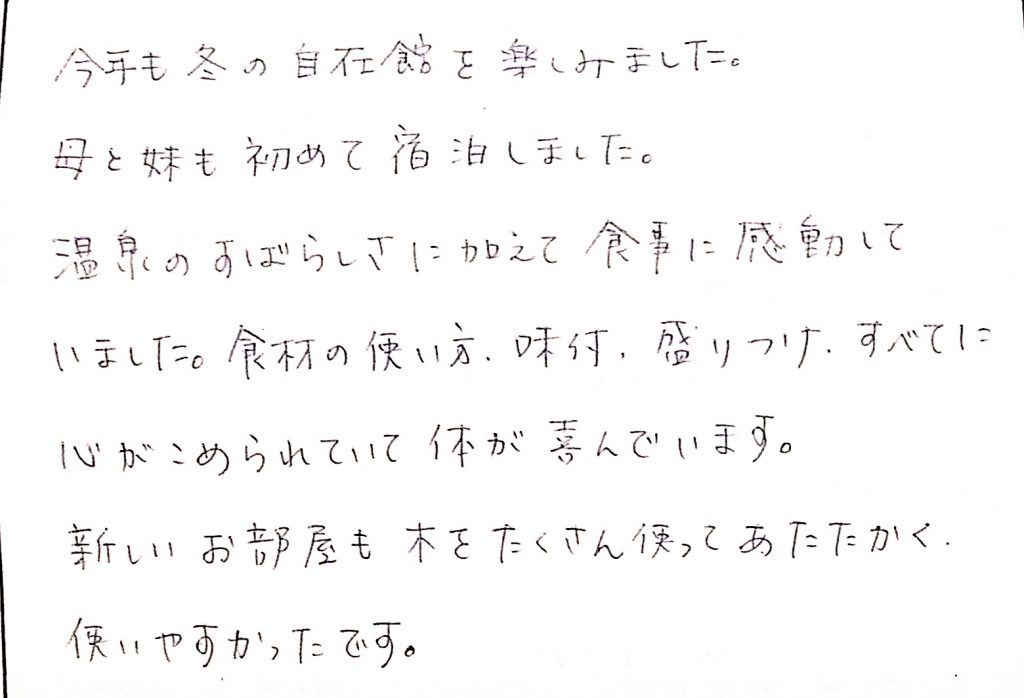 今年も冬の自在館を楽しみました。
母と妹も初めて宿泊しました。
温泉のすばらしさに加えて食事に感動して
いました。食材の使い方、味付、盛りつけ、すべてに
心がこめられていて体が喜んでいます。
新しいお部屋も木をたくさん使ってあたたかく、
使いやすかったです。